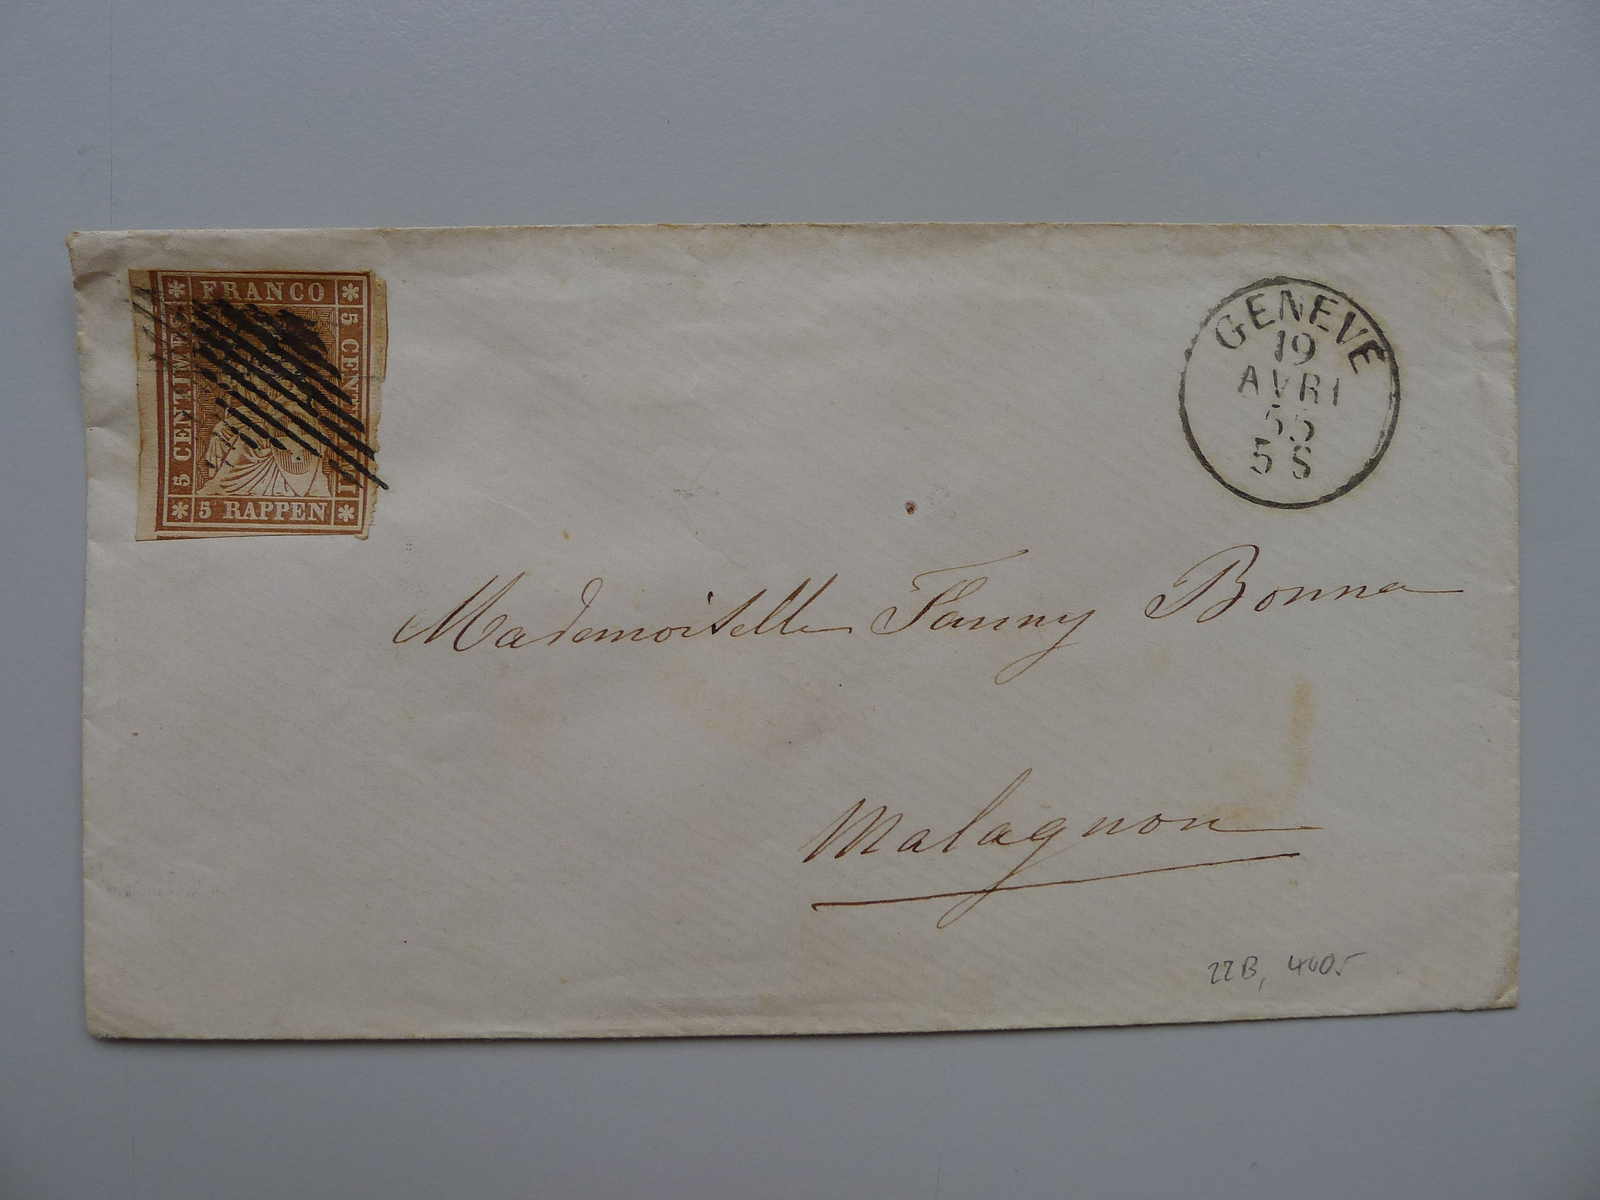 FRANCO
5 CENTIMES
5 CENTIMI
5 RAPPEN
GENEVE
19
AVRI
55
5 S
Mademoiselle Fanny Bonna
Malagnon
22B, 400.-